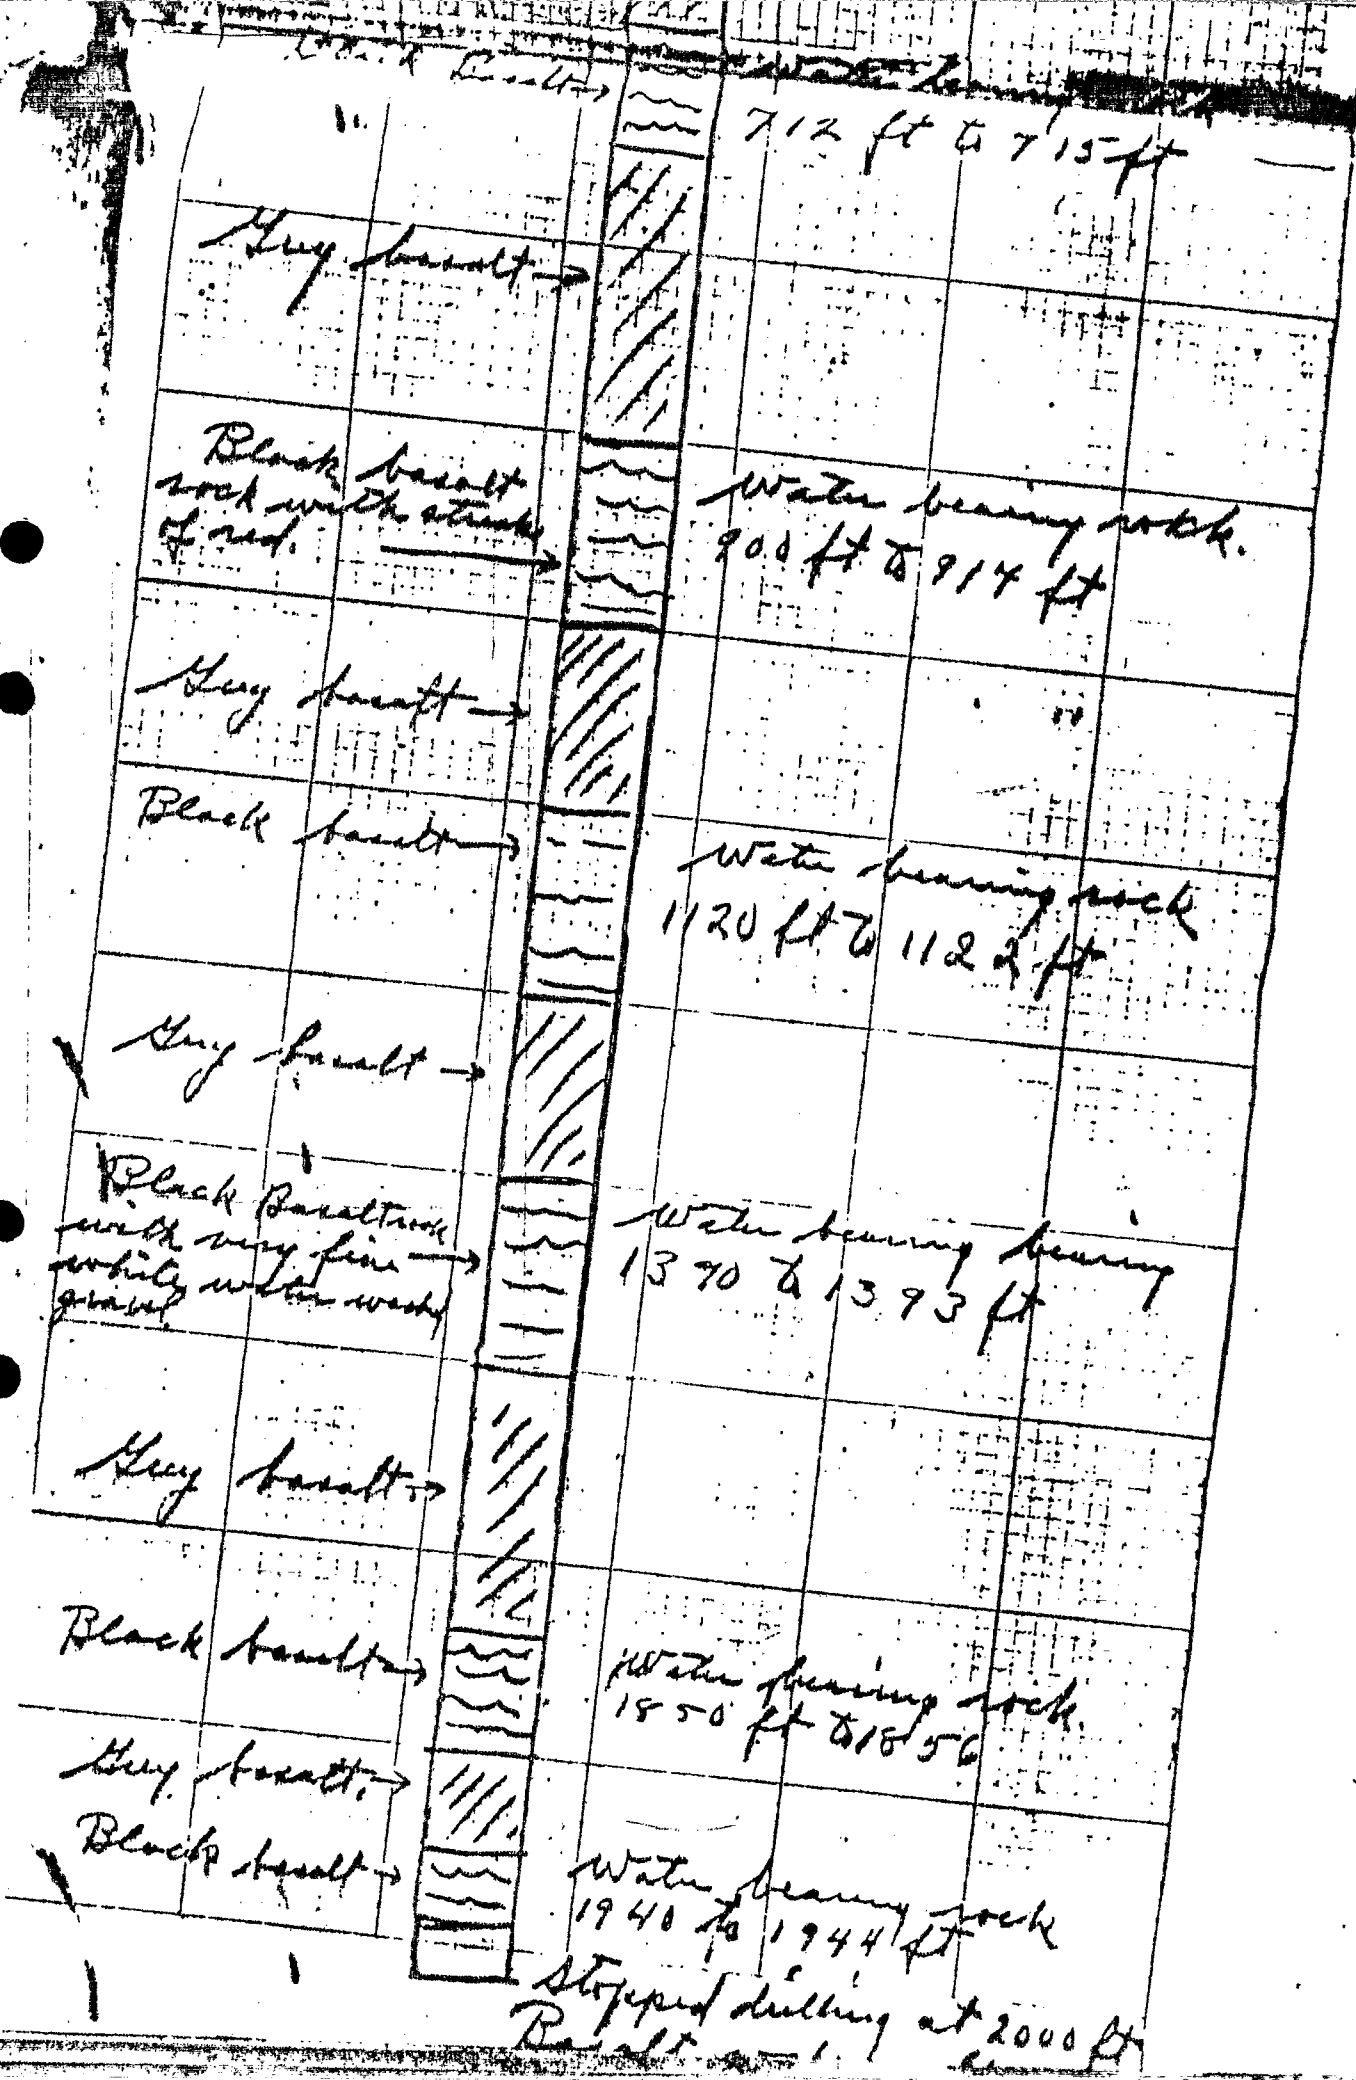 Black Basalt
Water bearing rock
712 ft to 715 ft
Grey basalt
Black basalt
rock with streaks
of red.
Water bearing rock.
900 ft to 914 ft
Grey basalt
Black basalt
Water bearing rock
1120 ft to 1122 ft
Grey basalt
Black Basalt rock
with very fine
white water washed
gravel.
Water bearing bearing
1390 to 1393 ft
Grey basalt
Black basalt
Water bearing rock.
1850 ft to 1856
Grey basalt.
Black basalt
Water bearing rock
1940 to 1944 ft
Stopped drilling at 2000 ft
Basalt